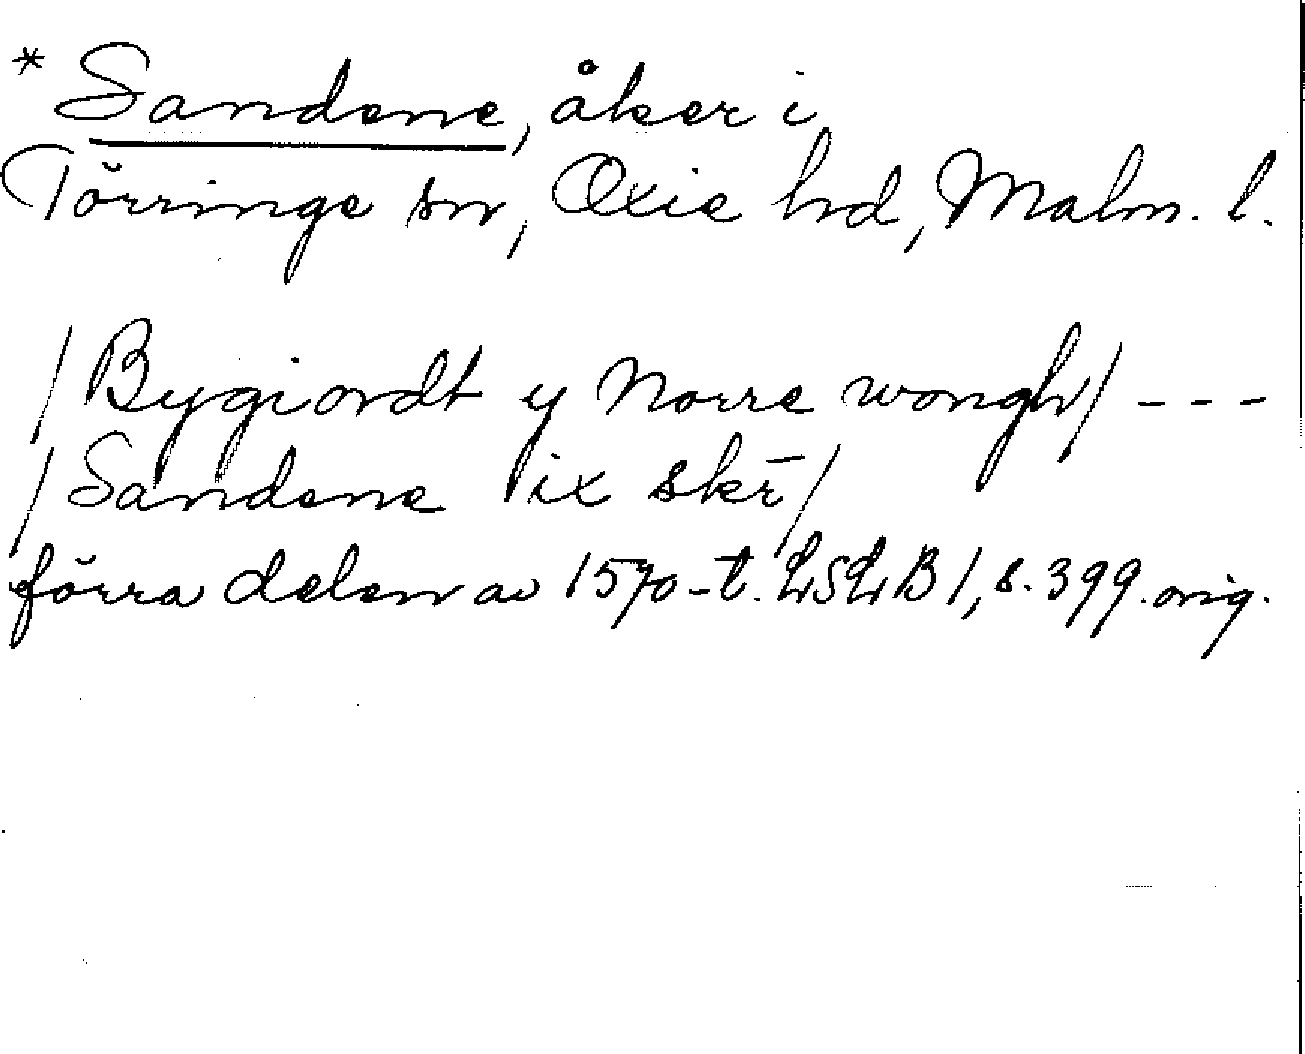 * Sandene, åker i
Törringe sn, Oxie hd, Malm. l.
/Bygiordt y Norre wongh/ ---
/Sandene ix skr̄/
förra delen av 1570-t. LSLB1, s. 399. orig.